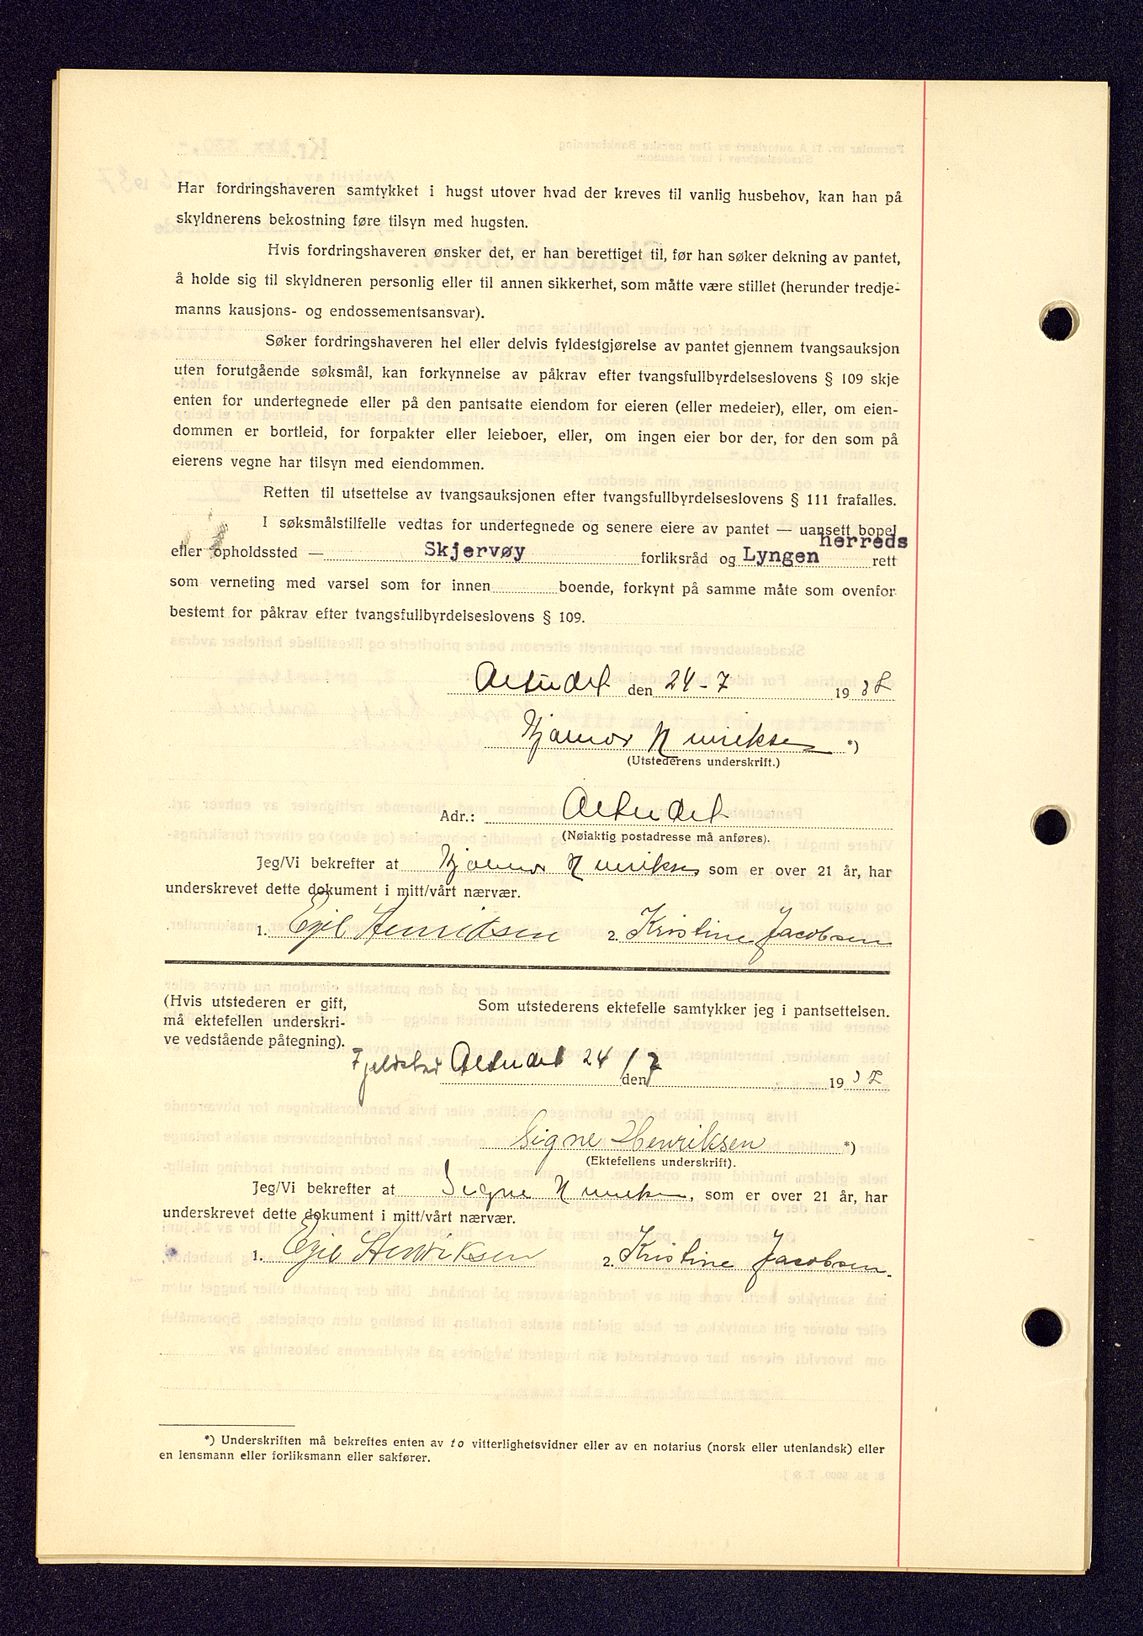 Har fordringshaveren samtykket i hugst utover hvad der kreves til vanlig husbehov, kan han på
skyldnerens bekostning føre tilsyn med hugsten.
Hvis fordringshaveren ønsker det, er han berettiget til, før han søker dekning av pantet,
å holde sig til skyldneren personlig eller til annen sikkerhet, som måtte være stillet (herunder tredje-
manns kausjons- og endossementsansvar).
Søker fordringshaveren hel eller delvis fyldestgjørelse av pantet gjennem tvangsauksjon
uten forutgående søksmål, kan forkynnelse av påkrav efter tvangsfullbyrdelseslovens § 109 skje
enten for undertegnede eller på den pantsatte eiendom for eieren (eller medeier), eller, om eien-
dommen er bortleid, for forpakter eller leieboer, eller, om ingen eier bor der, for den som på
eierens vegne har tilsyn med eiendommen.
Retten til utsettelse av tvangsauksjonen efter tvangsfullbyrdelseslovens § 111 frafalles.
I søksmålstilfelle vedtas for undertegnede og senere eiere av pantet — uansett bopel
eller opholdssted — Skjervøy forliksråd og Lyngen herreds rett
som verneting med varsel som for innen boende, forkynt på samme måte som ovenfor
bestemt for påkrav efter tvangsfullbyrdelseslovens § 109.
den 24-7 19
Hjalmar Henriksen *)
(Utstederens underskrift.)
Adr.:
(Nøiaktig postadresse må anføres).
Jeg/Vi bekrefter at Hjalmar Henriksen som er over 21 år, har
underskrevet dette dokument i mitt/vårt nærvær.
1. Egil Henriksen 2. Kristine Jacobsen
(Hvis utstederen er gift,
må ektefellen underskri-
ve vedstående påtegning).
Som utstederens ektefelle samtykker jeg i pantsettelsen.
24/7 den 19
Signe Henriksen *)
(Ektefellens underskrift).
Jeg/Vi bekrefter at Signe Henriksen, som er over 21 år, har
underskrevet dette dokument i mitt/vårt nærvær.
1. Egil Henriksen 2. Kristine Jacobsen.
*) Underskriften må bekreftes enten av to vitterlighetsvidner eller av en notarius (norsk eller utenlandsk) eller
en lensmann eller forliksmann eller sakfører.